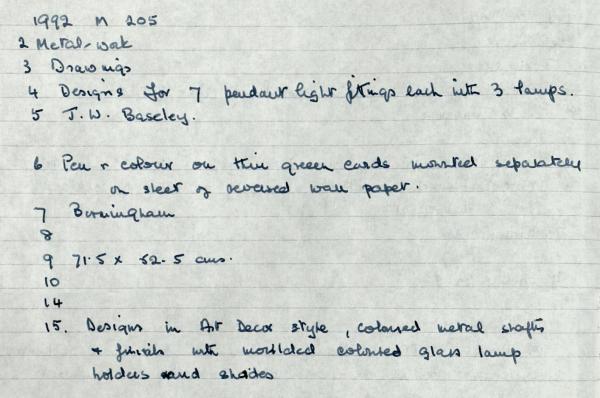 1992 M 205
2 Metal-wok
3 Drawings
4 Designs for 7 pendant light fittings each with 3 lamps.
5 J. W. Baseley.
6 Pen & colour on thin green cards mounted separately
on sheet of reversed wall paper.
7 Birmingham
8
9 71.5 x 52.5 cms.
10
14
15. Designs in Art Decor style, coloured metal shafts
& finials with moulded coloured glass lamp
holders and shades